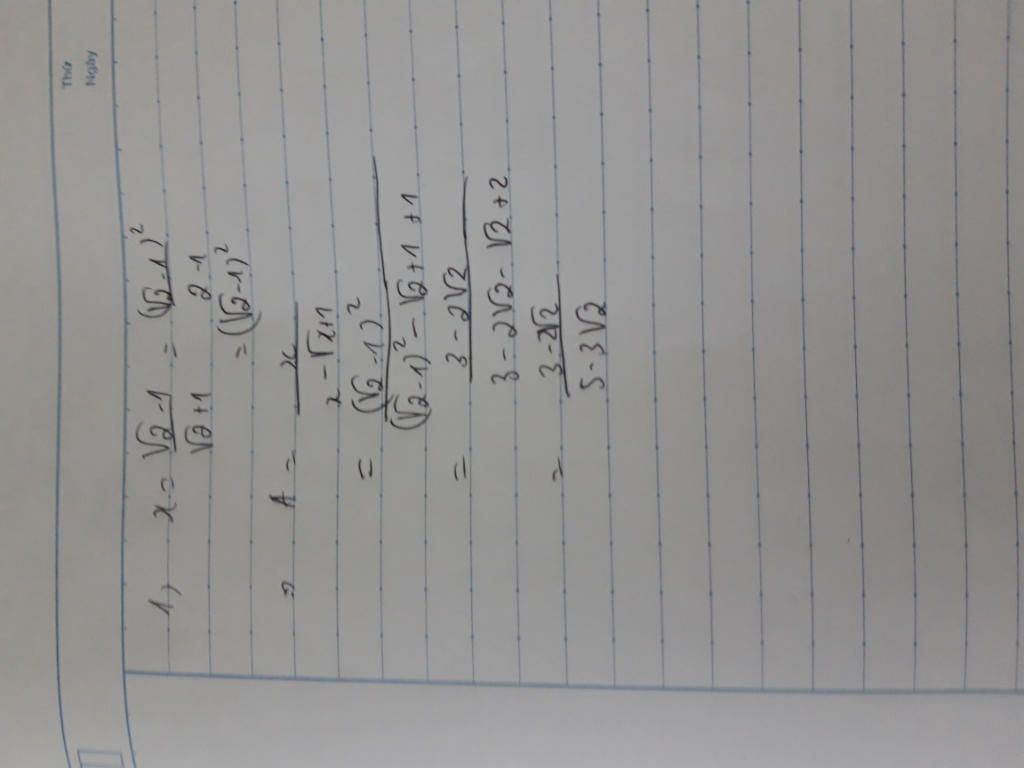 Thứ
Ngày
1, x = \frac{√2 - 1}{√2 + 1} = \frac{(√2 - 1)^2}{2 - 1}
= (√2 - 1)^2
⇒ A = \frac{x}{x - √x + 1}
= \frac{(√2 - 1)^2}{(√2 - 1)^2 - √2 + 1 + 1}
= \frac{3 - 2√2}{3 - 2√2 - √2 + 2}
= \frac{3 - 2√2}{5 - 3√2}